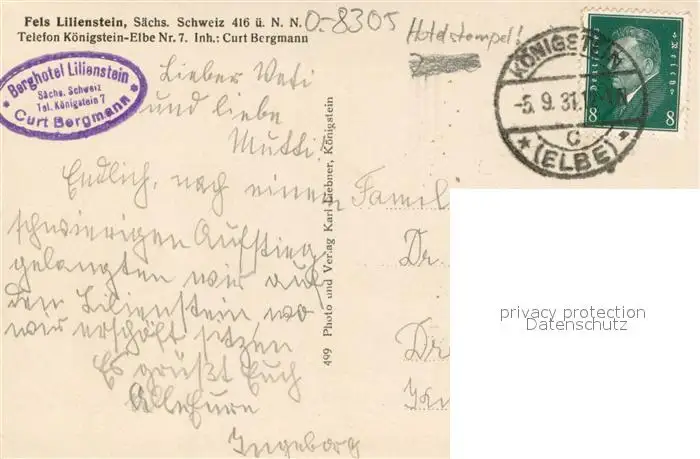 Fels Lilienstein, Sächs. Schweiz 416 ü. N. N.
Telefon Königstein-Elbe Nr. 7. Inh.: Curt Bergmann
O-8305
Hotelstempel!
Berghotel Lilienstein
Sächs. Schweiz
Tel. Königstein 7
Curt Bergmann
KÖNIGSTEIN
-5.9.31.
C
(ELBE)
Deutsches Reich
8 8
Lieber Vati
und liebe
Mutti!
Endlich, nach einem
schwierigen Aufstieg
gelangten wir auf
den Lilienstein, wo
wir erschöft sitzen
Es grüßt Euch
Ingeborg
499 Photo und Verlag Karl Liebner, Königstein
Famili
Dr.
Dr
privacy protection
Datenschutz